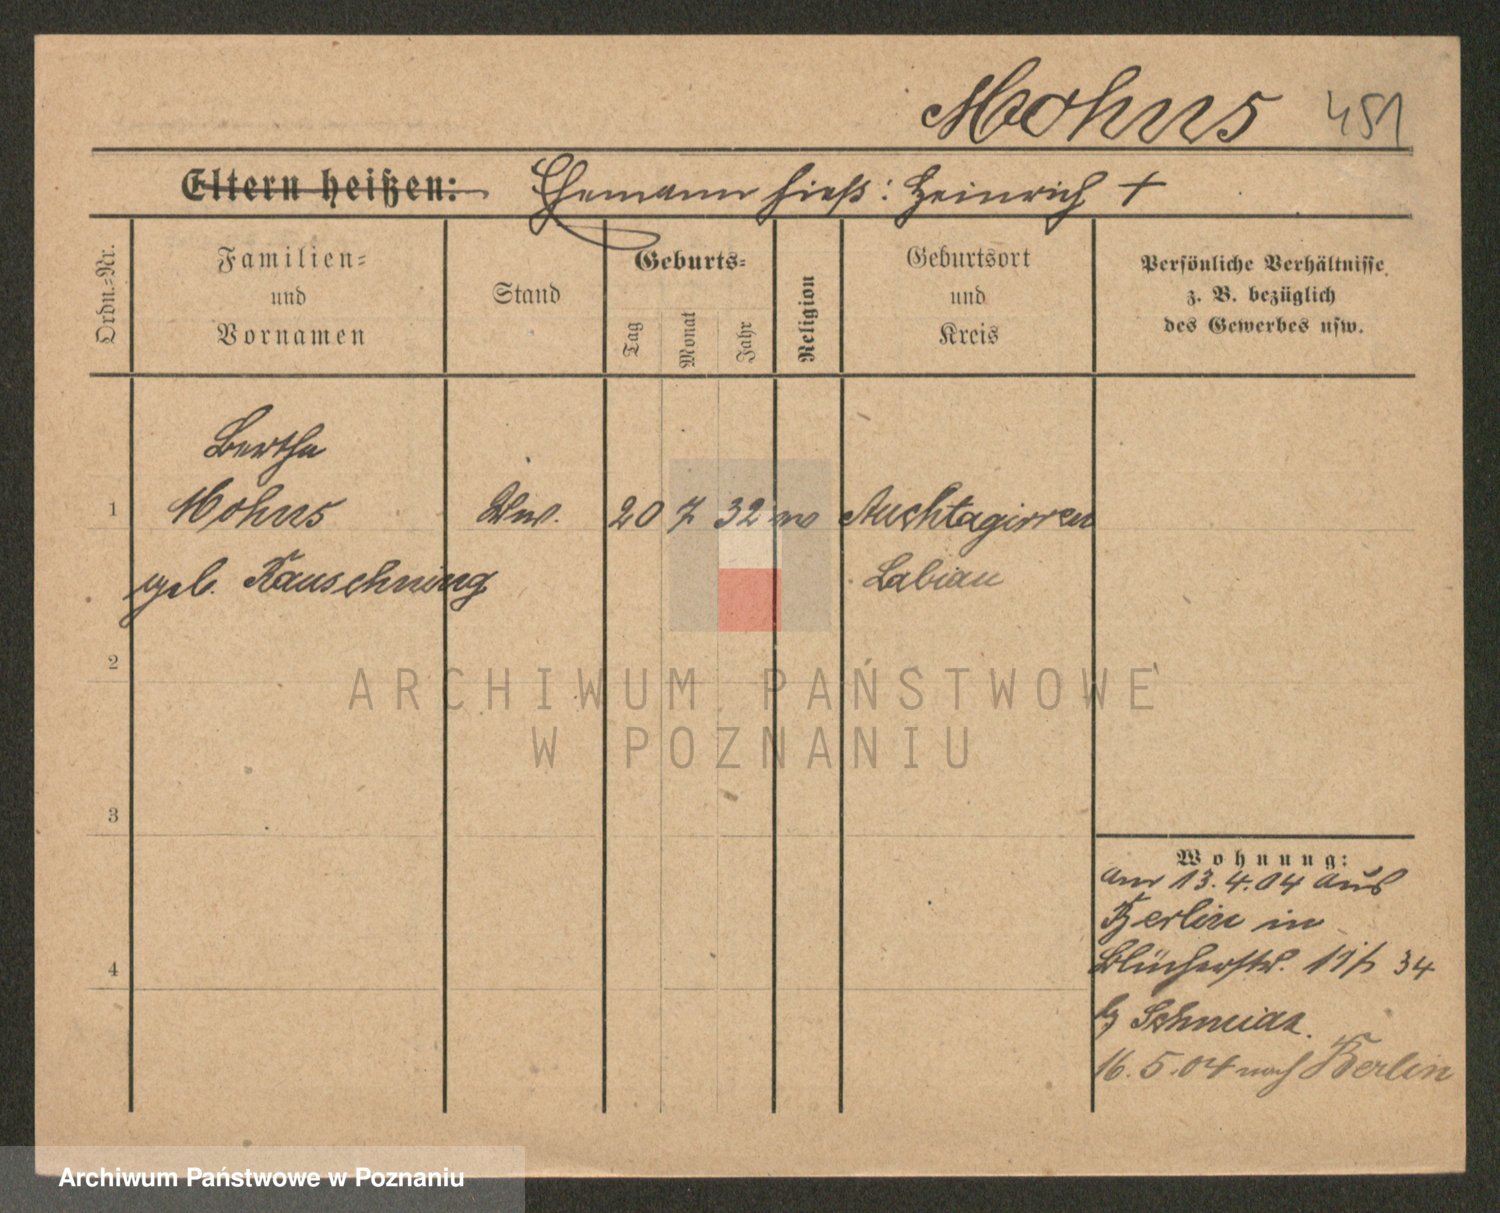 Mohns 451
Eltern heißen: Ehemann hieß: Heinrich +
Ordn.-Nr.
Familien-
und
Vornamen
Stand
Geburts-
Tag
Monat
Jahr
Religion
Geburtsort
und
Kreis
Persönliche Verhältnisse
z. B. bezüglich
des Gewerbes usw.
Bertha
1 Mohns Ww. 20 7 32 Auchtagirren
geb. Rauschning Labiau
2
ARCHIWUM PAŃSTWOWE
W POZNANIU
3
Wohnung:
am 13.4.04 aus
Berlin in
Blücherstr. 34
b/ Schneider
4
16.5.04 nach Berlin
Archiwum Państwowe w Poznaniu